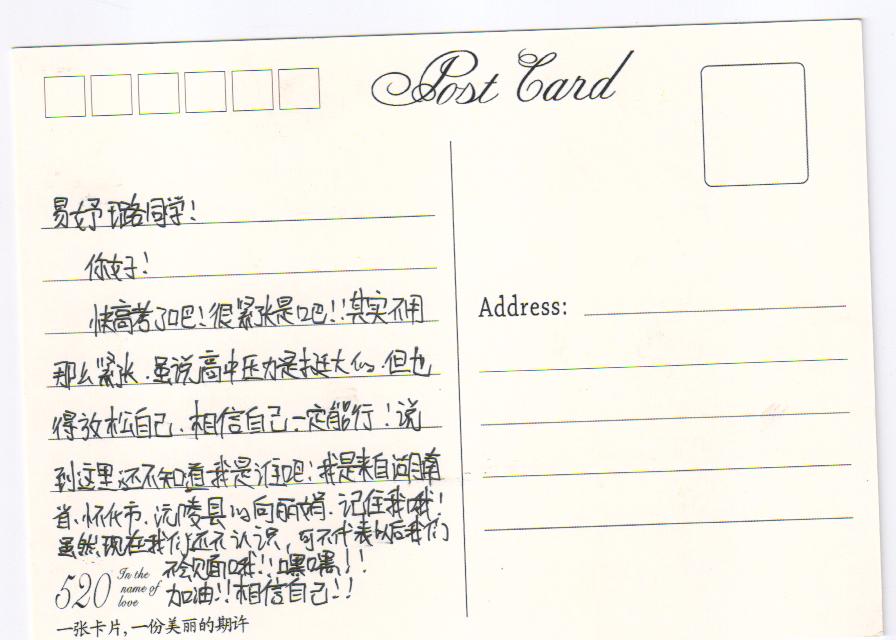 Post Card
易妤璐同学!
你好!
快高考了吧!很紧张是吧!!其实不用
那么紧张.虽说高中压力是挺大的.但也
得放松自己.相信自己一定能行!说
到这里还不知道我是谁吧!我是来自湖南
省.怀化市.沅陵县的向丽娟.记住我哦!
虽然现在我们还不认识,可不代表以后我们
不会见面哦!!嘿嘿!!
加油!!相信自己!!
520 In the name of love
一张卡片,一份美丽的期许
Address: